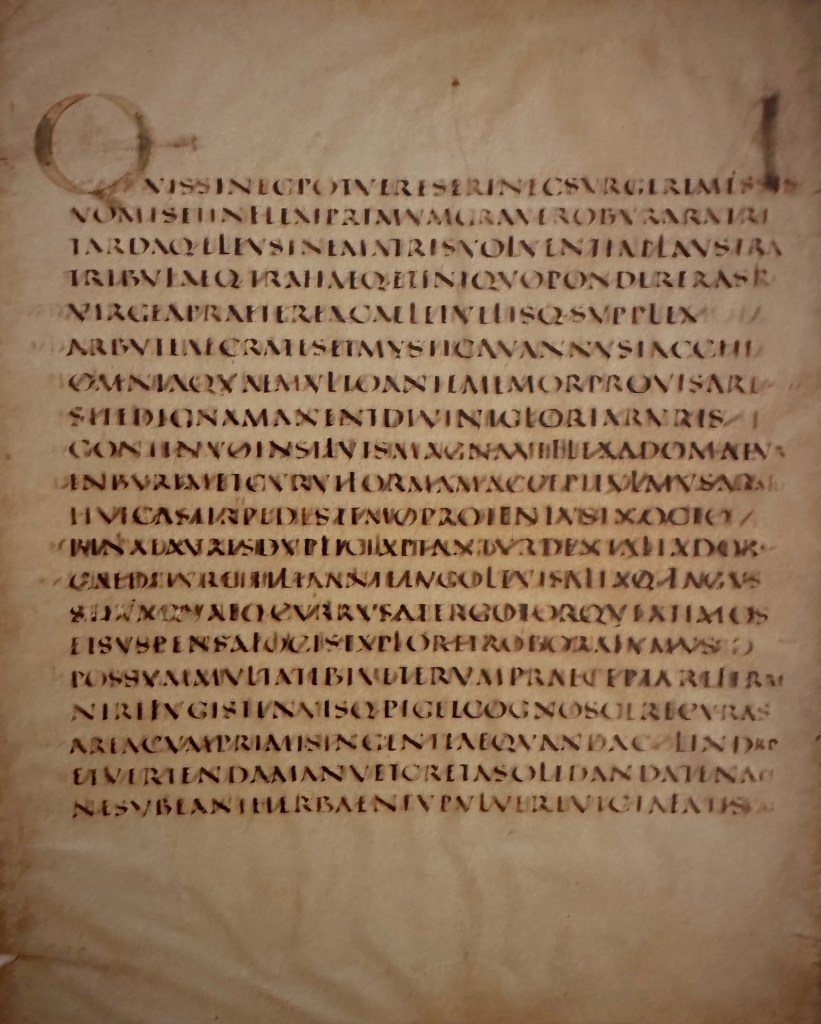 QVISSINENECPOTVERESERINECSVRGEREMESSIS
VOMISETINFLEXIPRIMVMGRAVEROBVRARATRI
TARDAQELEVSINEAEMATRISVOLVENTIAPLAVSTRA
TRIBVLAEQTRAHAEQETINIQVOPONDERERAS
VIRGEAPRAETEREACAELEIVILISQSVPPLEX
ARBVTEAECRATESETMYSTICAVANNVSIACCHI
OMNIAQVAEMVLTOANTEMEMORPROVISARE
SITEDIGNAMANENTDIVINIGLORIARVRIS
CONTINVOINSILVISMAGNAVIFLEXADOMATVR
INBVRIMETCVRVIFORMAMACCIPITVLMVSARA
HVICASTIRPEPEDESTEMOPROTENTVSINOCTO
BINAEAVRESDVPLICIAPTANTVRDENTALIADOR
CAEDITVRETTILIAANTEIVGOLEVISALTAQFAGVS
STIVAQVAECVRRVSATERGOTORQVEATIMOS
ETSVSPENSAFOCISEXPLORETROBORAFVMVS
POSSVMMVLTATIBIVETERVMPRAECEPTAREFERRE
NIREFVGISTENVISQPIGETCOGNOSCERECVRAS
AREACVMPRIMISINGENTIAEQVANDACYLINDRO
ETVERTENDAMANVETCRETASOLIDANDATENAC
NESVBEANTHERBAENEVPVLVEREVICTAFATIS